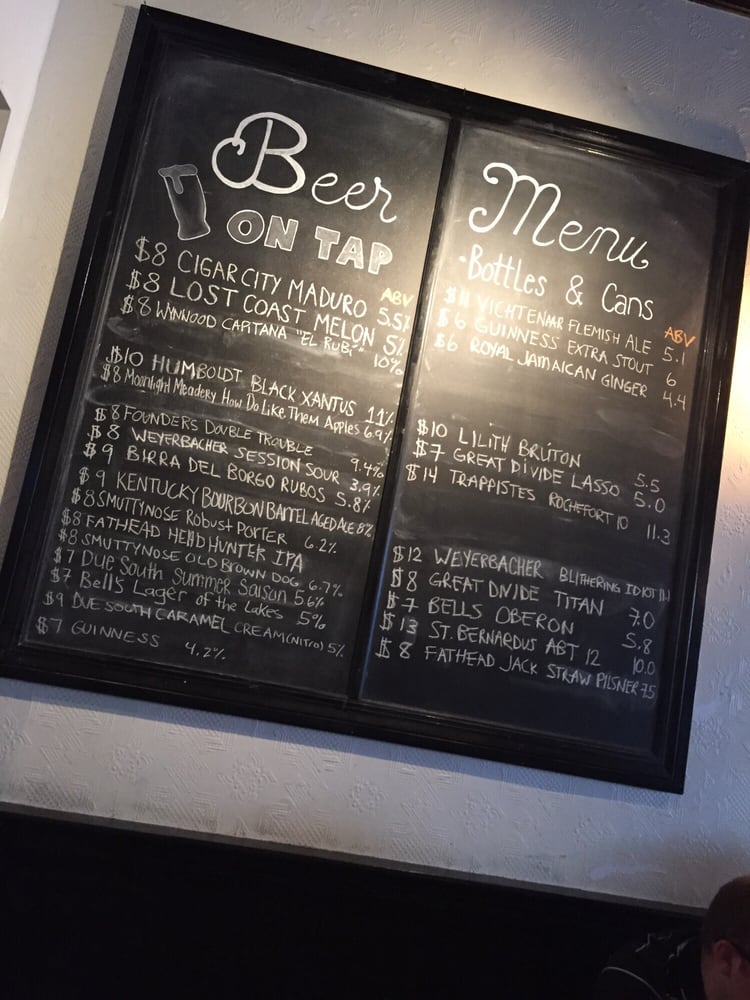 Beer
ON TAP
ABV
$8 CIGAR CITY MADURO 5.5%
$8 LOST COAST MELON 5%
$8 WYNWOOD CAPITANA "EL RUBI" 10%
$10 HUMBOLDT BLACK XANTUS 11%
$8 Moonlight Meadery How Do Like Them Apples 6.9%
$8 FOUNDERS DOUBLE TROUBLE 9.4%
$8 WEYERBACHER SESSION SOUR 3.9%
$9 BIRRA DEL BORGO RUBOS 5.8%
$9 KENTUCKY BOURBON BARREL AGED ALE 8%
$8 SMUTTYNOSE ROBUST PORTER 6.2%
$8 FATHEAD HEAD HUNTER IPA
$8 SMUTTYNOSE OLD BROWN DOG 6.7%
$7 Due South Summer Saison 5.6%
$7 Bells Lager of the Lakes 5%
$9 DUE SOUTH CARAMEL CREAM (Nitro) 5%
$7 GUINNESS 4.2%
Menu
·Bottles & Cans
ABV
$11 VICHTENAAR FLEMISH ALE 5.1
$6 GUINNESS EXTRA STOUT 6
$6 ROYAL JAMAICAN GINGER 4.4
$10 LILITH BRÚTON 5.5
$7 GREAT DIVIDE LASSO 5.0
$14 TRAPPISTES ROCHEFORT 10 11.3
$12 WEYERBACHER BLITHERING IDIOT 11.1
$8 GREAT DIVIDE TITAN 7.0
$7 BELLS OBERON 5.8
$13 ST. BERNARDUS ABT 12 10.0
$8 FATHEAD JACK STRAW PILSNER 7.5